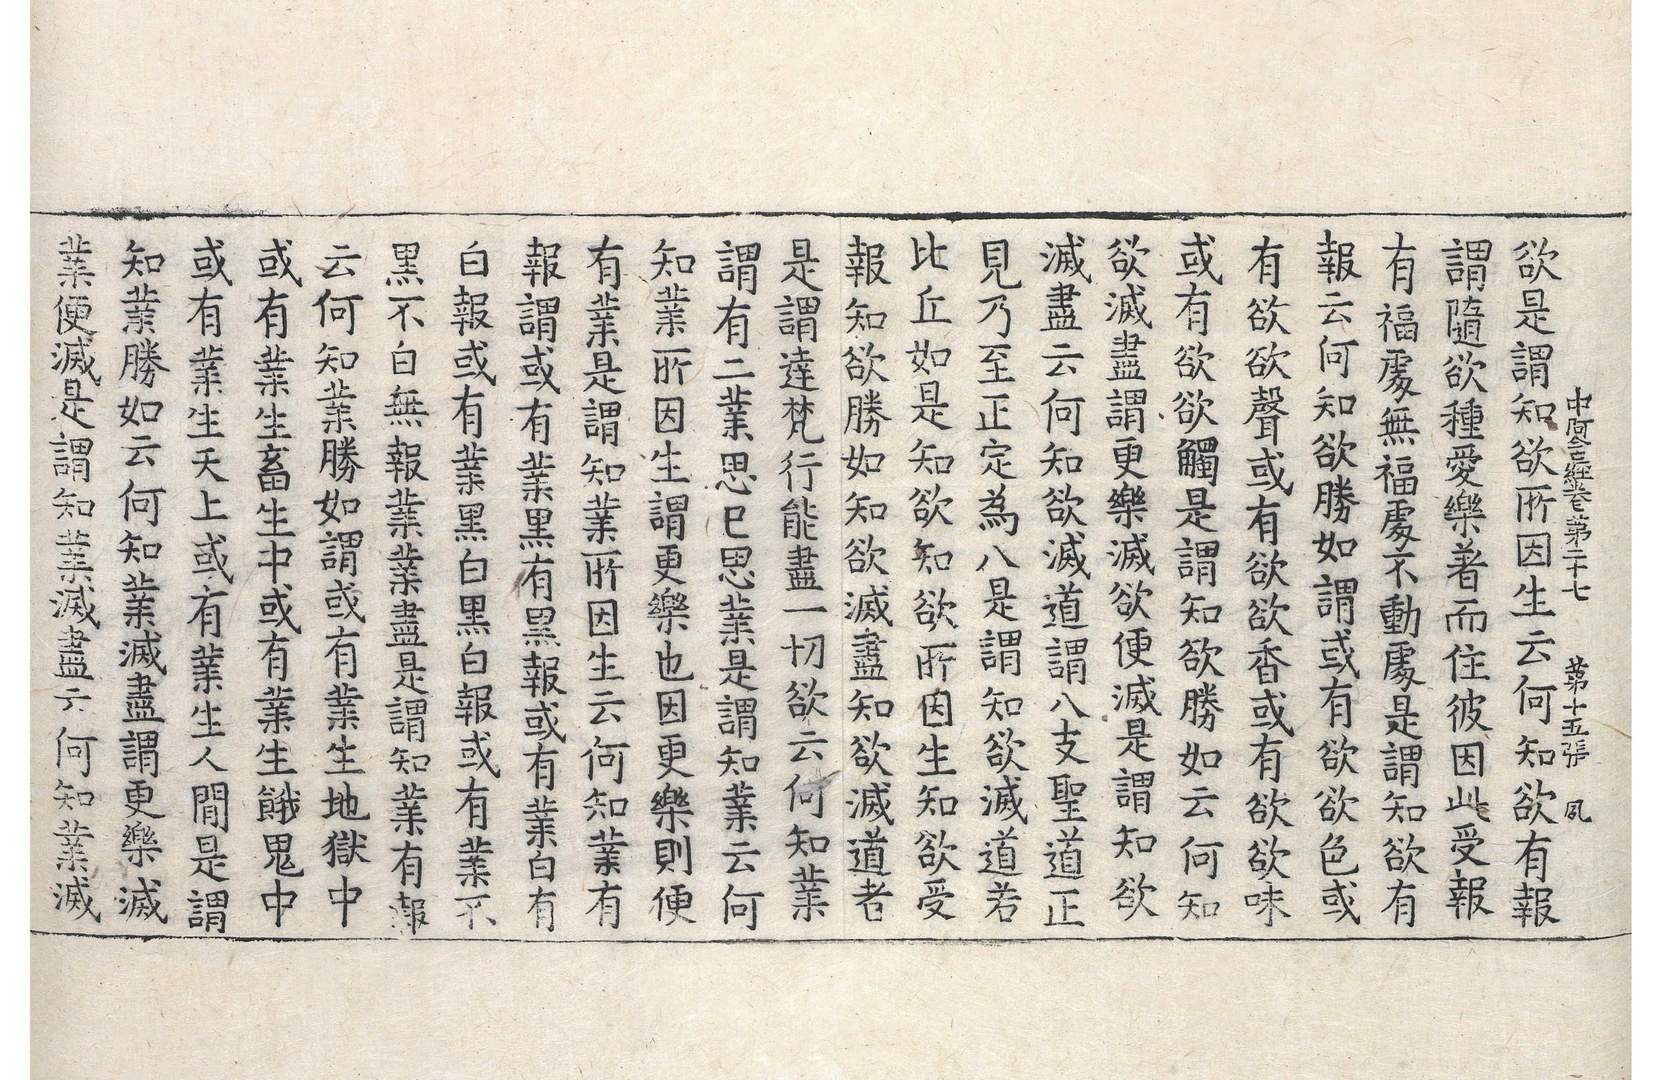 中阿含經卷第二十七　第十五張　夙
欲是謂知欲所因生云何知欲有報
謂隨欲種愛樂著而住彼因此受報
有福處無福處不動處是謂知欲有
報云何知欲勝如謂或有欲欲色或
有欲欲聲或有欲欲香或有欲欲味
或有欲欲觸是謂知欲勝如云何知
欲滅盡謂更樂滅欲便滅是謂知欲
滅盡云何知欲滅道謂八支聖道正
見乃至正定為八是謂知欲滅道若
比丘如是知欲知欲所因生知欲受
報知欲勝如知欲滅盡知欲滅道者
是謂達梵行能盡一切欲云何知業
謂有二業思已思業是謂知業云何
知業所因生謂更樂也因更樂則便
有業是謂知業所因生云何知業有
報謂或有業黑有黑報或有業白有
白報或有業黑白黑白報或有業不
黑不白無報業業盡是謂知業有報
云何知業勝如謂或有業生地獄中
或有業生畜生中或有業生餓鬼中
或有業生天上或有業生人間是謂
知業勝如云何知業滅盡謂更樂滅
業便滅是謂知業滅盡云何知業滅